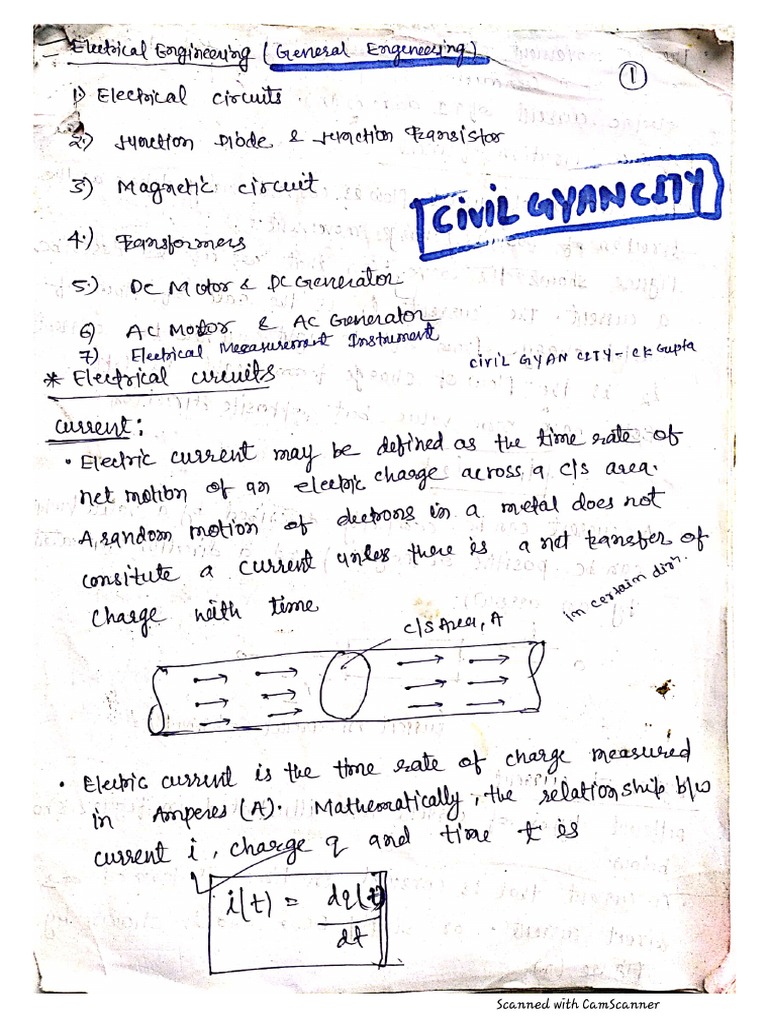 Electrical Engineering (General Engeneering)
1
1) Electrical circuits
2.) Junction Diode & Junction Transistor
3) Magnetic circuit
CIVIL GYAN CITY
4.) Transformers
5.) DC Motor & DC Generator
6) AC Motor & AC Generator
7) Electrical Measurement Instrument
CIVIL GYAN CITY - CK Gupta
* Electrical circuits
Current:
• Electric current may be defined as the time rate of
net motion of an electric charge across a c/s area.
A random motion of electrons in a metal does not
consitute a current unless there is a net transfer of
charge with time
in certain dirn.
C/S Area, A
• Electric current is the time rate of charge measured
in Amperes (A). Mathematically, the relationship b/w
current i, charge q and time t is
i(t) = dq(t)
dt
Scanned with CamScanner